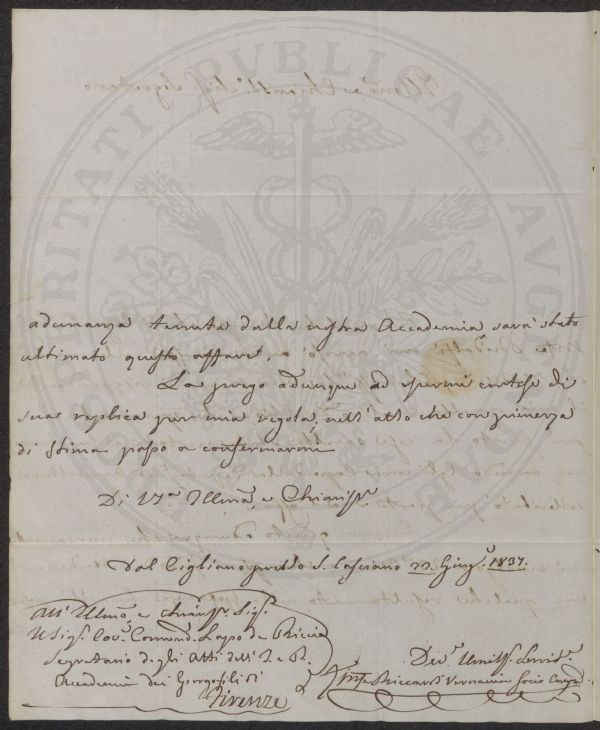 PROSPERITATI PVBLICAE AVGENDAE
adunanza tenuta dalla nostra Accademia, sarà stato
ultimato questo affare.
La prego adunque ad essermi cortese di
sua replica per mia regola, nell'atto che con pienezza
di stima passo a confermarmi
Di V.ª Illmã e Chiariss.ª
Dal Cigliano presso S. Casciano 22. Giug.º 1837.
All' Illmõ, e Chiariss. Sig.
Il Sig. Cav. Commend. Lapo de Ricci
Segretario degli Atti dell' I. e R.
Accademia dei Georgofili di
Firenze
Dev.º Umiliss. Servid.e
Riccardi Vernaccia Socio Corrisp.